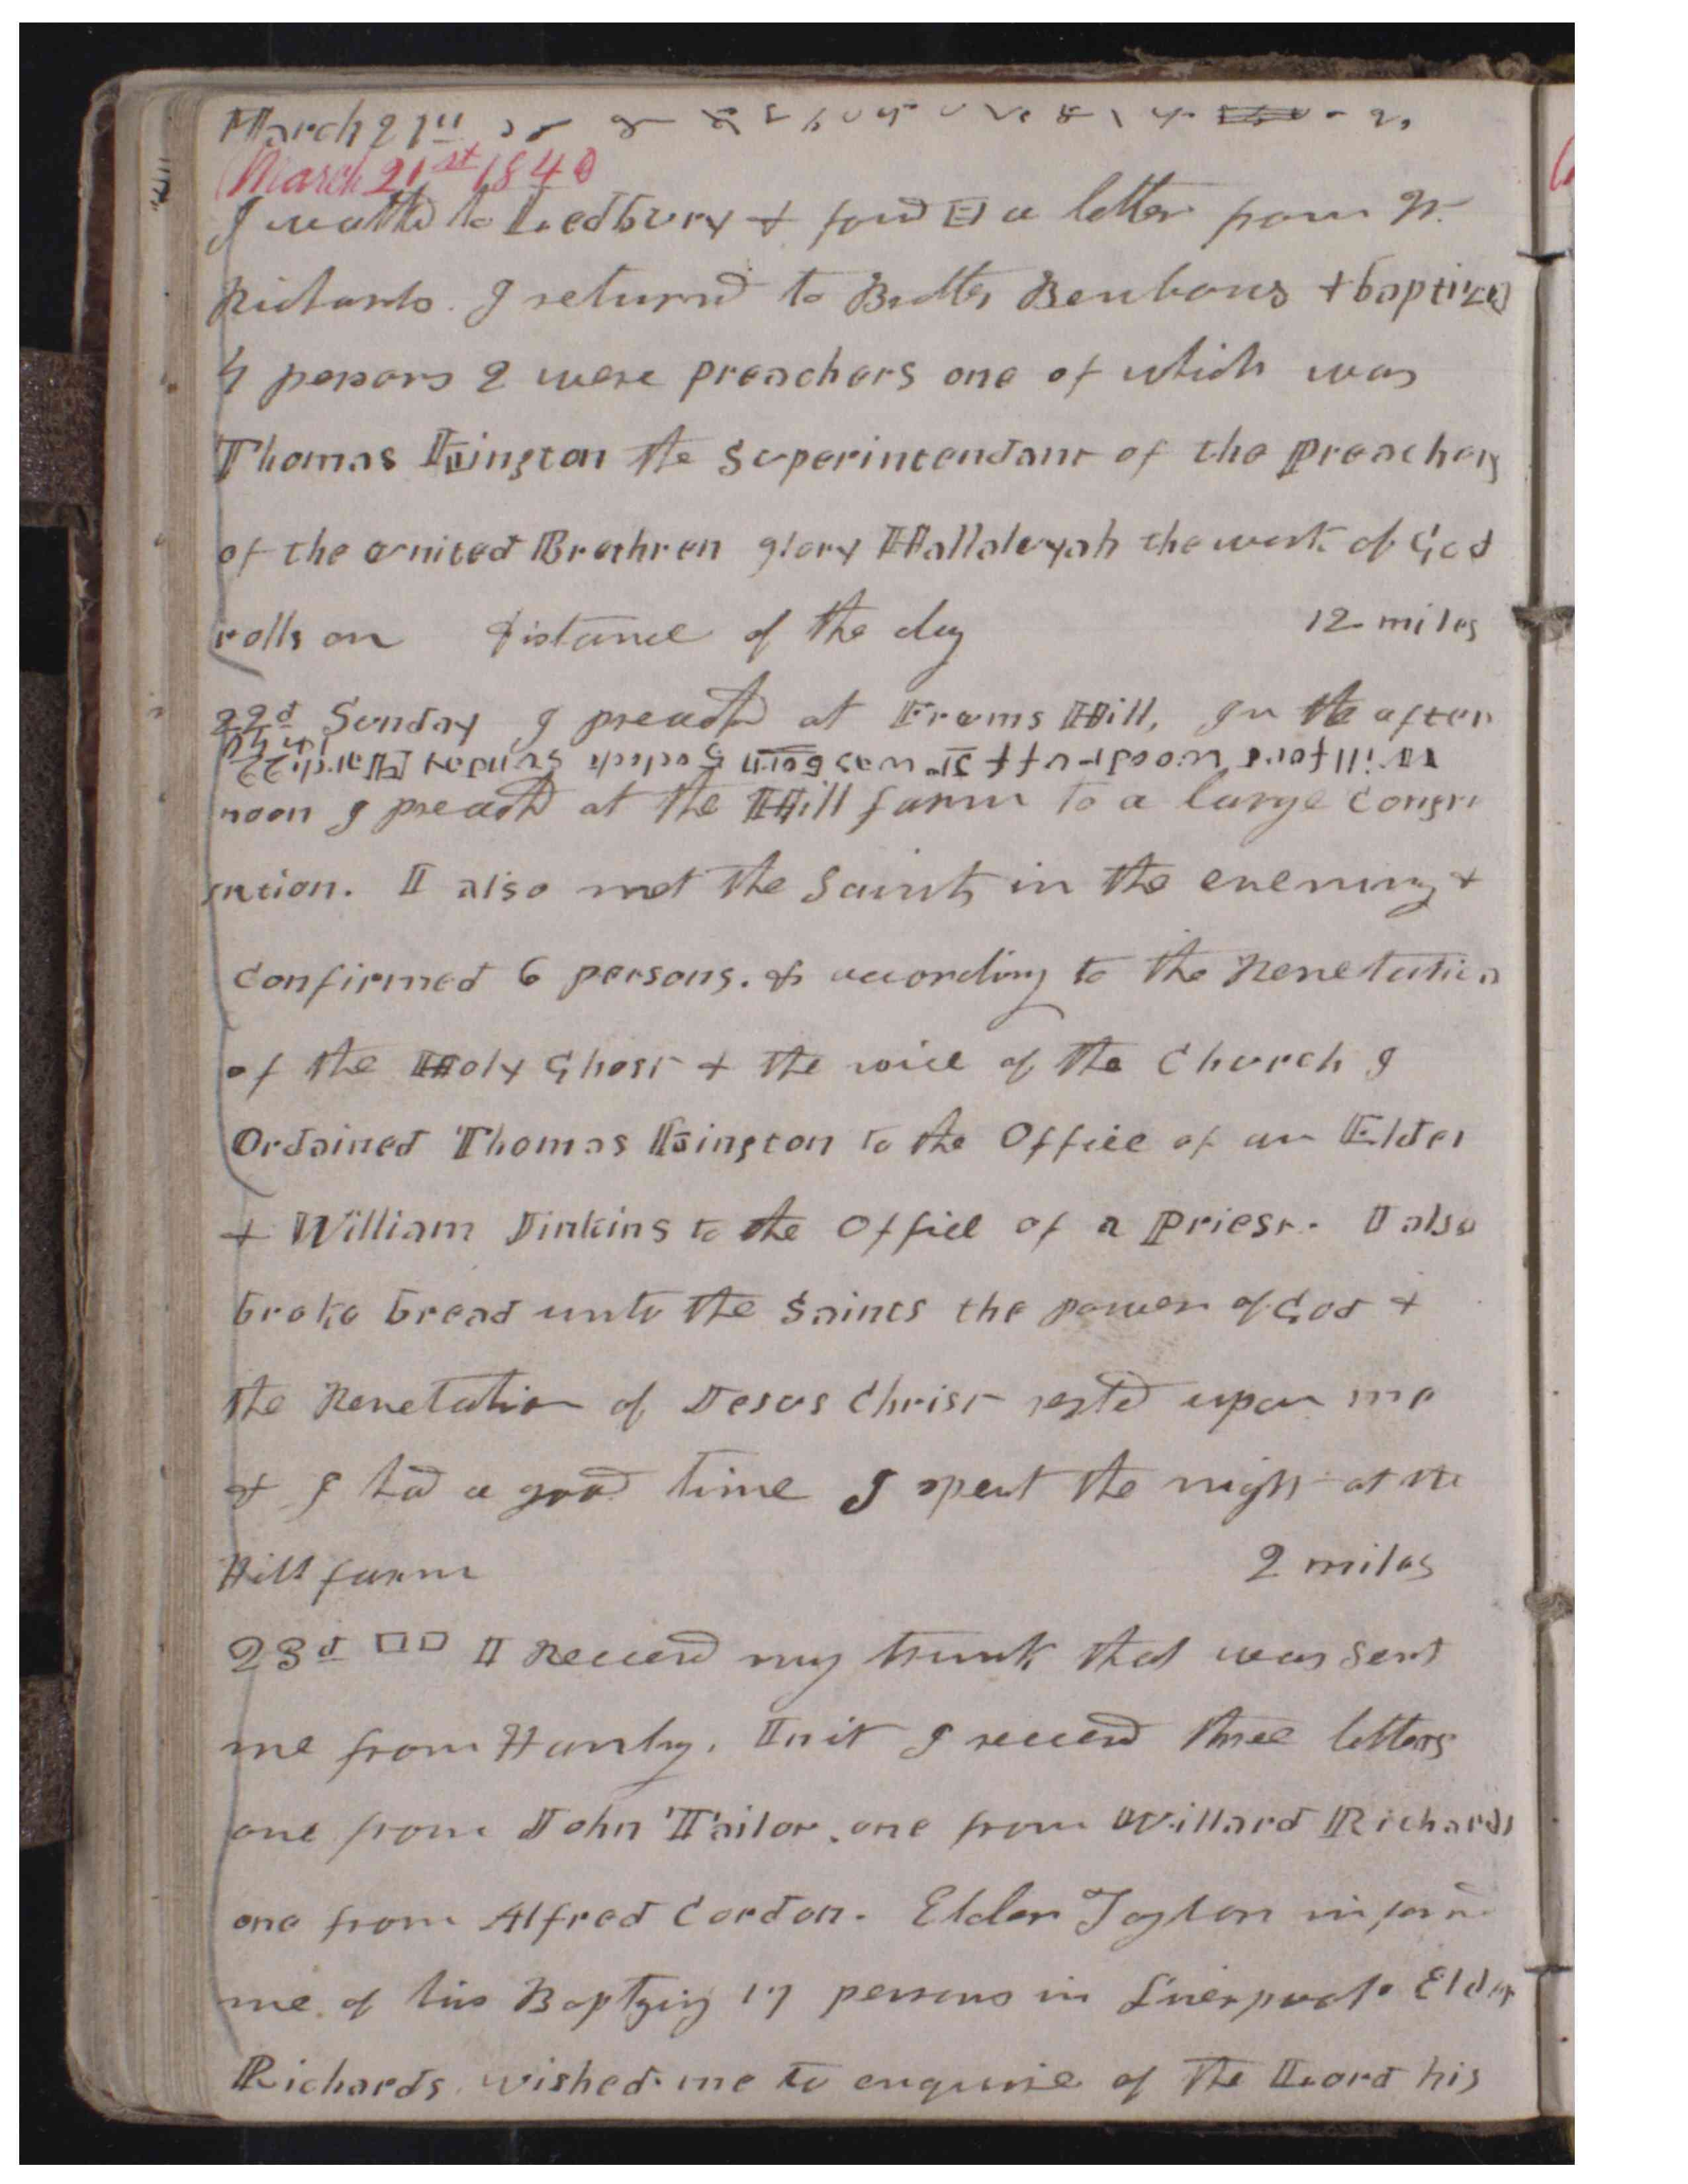 March 21st
March 21st 1840
I walkd to Ledbury & found a letter from W.
Richards. I returnd to Brother Benbows & baptized
4 persons 2 were preachers one of which was
Thomas Kington the Superintendant of the Preachers
of the United Brethren glory Hallaluyah the work of God
rolls on distance of the day 12 miles
22d Sunday I preachd at Froms Hill, In the after
Willford Woodruff Jr was born 5 oclock Sunday March 22nd 1840
noon I preachd at the Hill farm to a large congre
gation. I also met the Saints in the evening &
Confirmed 6 persons. & according to the Revelation
of the Holy Ghost & the voice of the Church I
Ordained Thomas Kington to the Office of an Elder
& William Jinkins to the Office of a Priest. I also
broke bread unto the Saints the power of God &
the Revelation of Jesus Christ rested upon me
& I had a good time I spent the night at the
Hill farm 2 miles
23d I Receied my trunk that was sent
me from Hanley. In it I receied three letters
one from John Tailor, one from Willard Richards
one from Alfred Cordon. Elder Taylor informd
me of his Baptizing 17 persons in Liverpool. Elder
Richards wished me to enquire of the Lord his